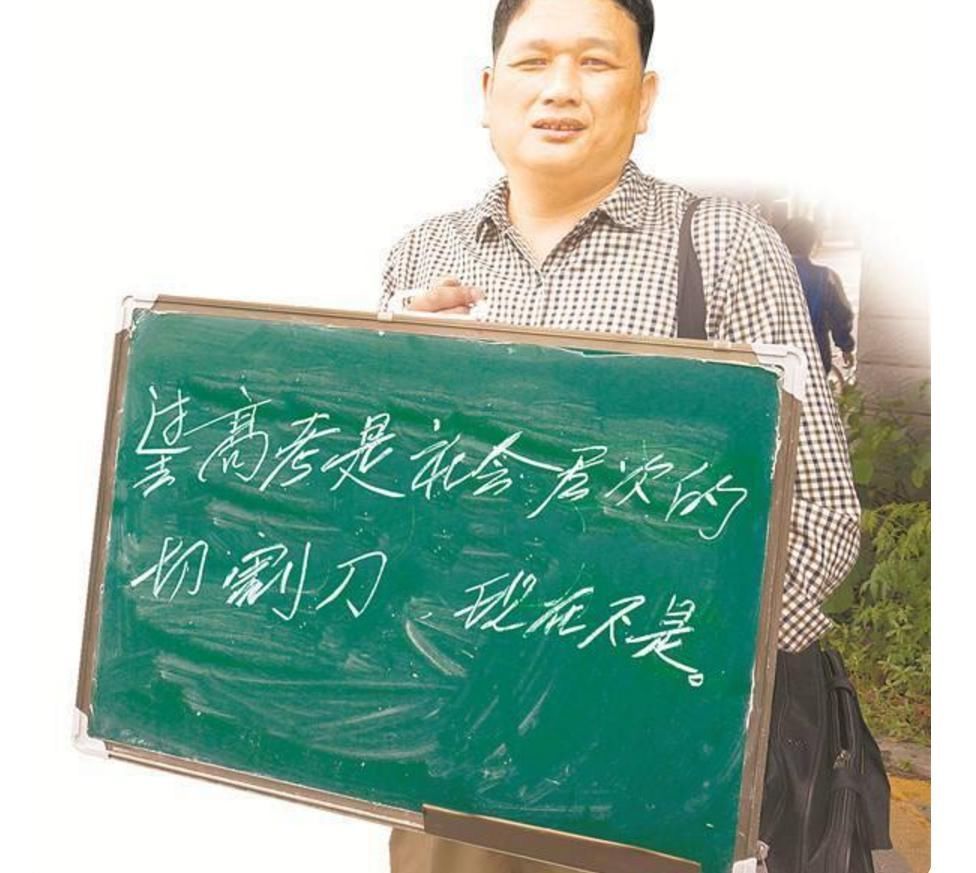 过去高考是社会层次的
切割刀，现在不是。